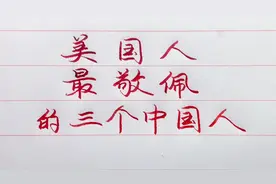 美国人
最敬佩
的三个中国人